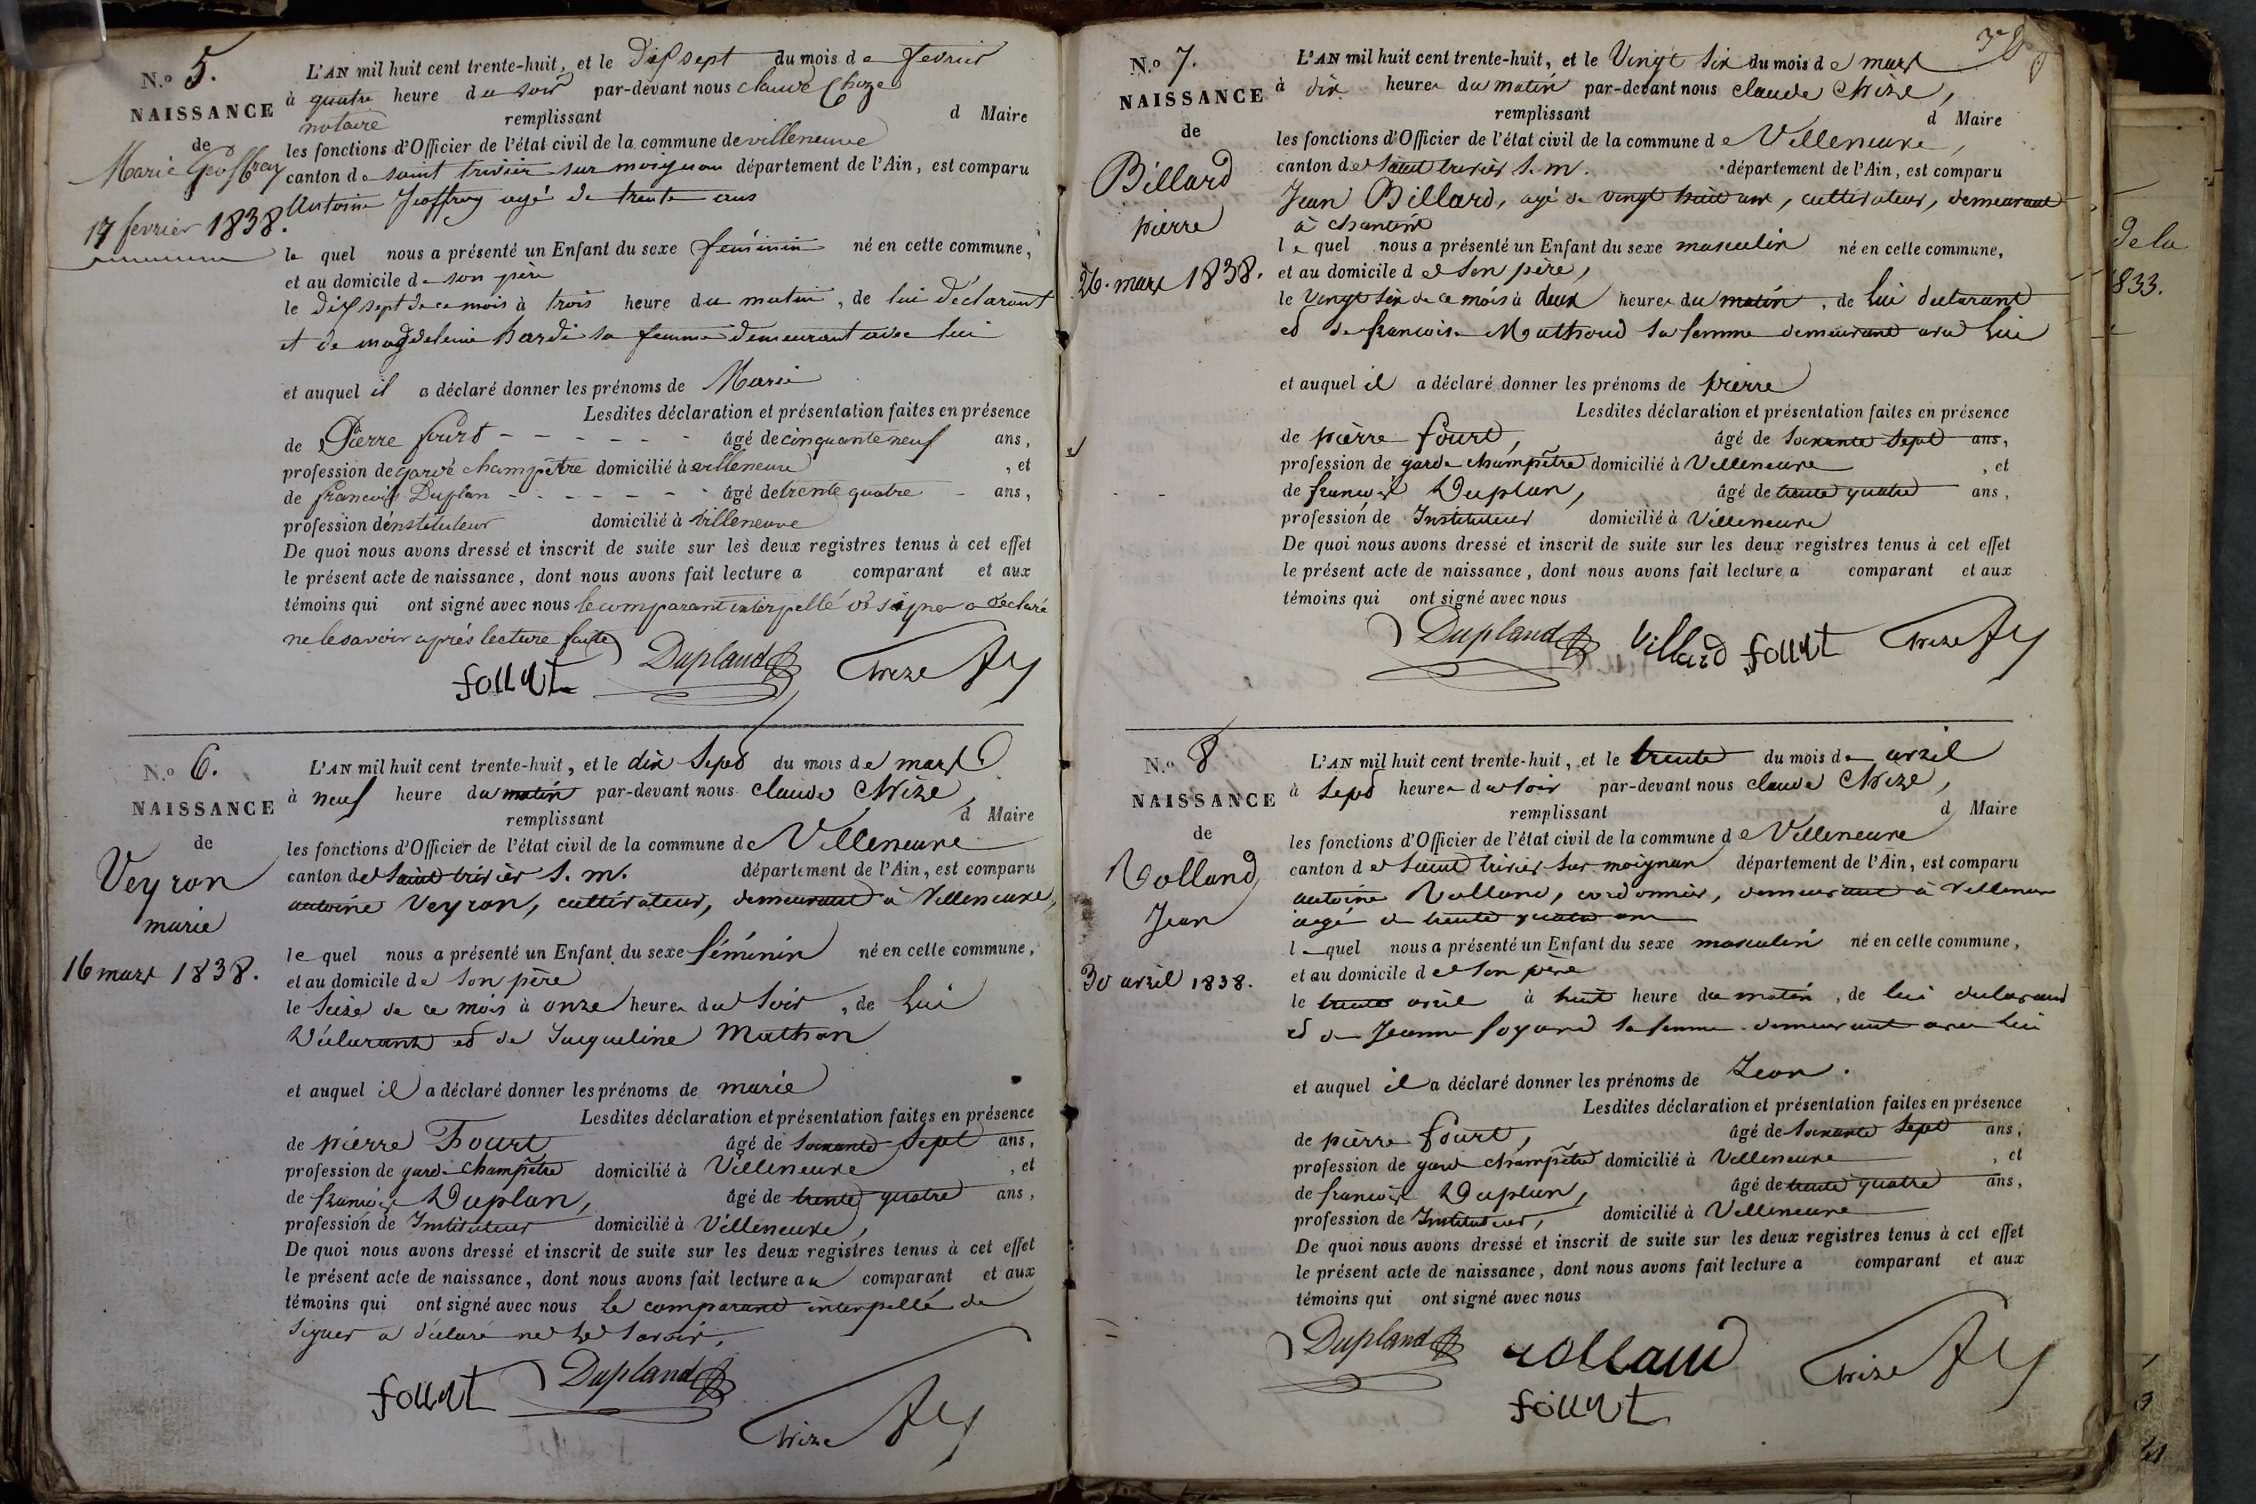 N.o 5.
NAISSANCE
de
Marie Geoffray
17 fevrier 1838.
L'AN mil huit cent trente-huit, et le Dix sept du mois de fevrier
à quatre heure du soir par-devant nous claude Chize
notaire remplissant d Maire
les fonctions d'Officier de l'état civil de la commune de villeneuve
canton de saint trivier sur moignan département de l'Ain, est comparu
Antoine Jeoffray agé de trente ans
le quel nous a présenté un Enfant du sexe féminin né en cette commune,
et au domicile de son père
le dix sept de ce mois à trois heure du matin, de lui déclarant
et de magdeleine Bardi sa femme demeurant avec lui
et auquel il a déclaré donner les prénoms de Marie
Lesdites déclaration et présentation faites en présence
de Pierre fourt - - - - - - âgé de cinquante neuf ans,
profession de garde champêtre domicilié à villeneuve, et
de francois Duplan - - - - - - âgé de trente quatre - ans,
profession d'instituteur domicilié à villeneuve
De quoi nous avons dressé et inscrit de suite sur les deux registres tenus à cet effet
le présent acte de naissance, dont nous avons fait lecture a comparant et aux
témoins qui ont signé avec nous le comparant interpellé de signer a déclaré
ne le savoir après lecture faite
fourt Dupland Chize
N.o 6.
NAISSANCE
de
Veyron
marie
16 mars 1838.
L'AN mil huit cent trente-huit, et le dix Sept du mois de mars
à neuf heure du matin par-devant nous claude Chize,
remplissant d Maire
les fonctions d'Officier de l'état civil de la commune de Villeneuve
canton de Saint trivier S. m. département de l'Ain, est comparu
antoine Veyron, cultivateur, demeurant à Villeneuve,
le quel nous a présenté un Enfant du sexe féminin né en cette commune,
et au domicile de Son père
le Seize de ce mois à onze heures du Soir, de Lui
Déclarant et de Jacqueline Mathon
et auquel il a déclaré donner les prénoms de marie
Lesdites déclaration et présentation faites en présence
de pierre Fourt âgé de Soixante Sept ans,
profession de garde champêtre domicilié à Villeneuve, et
de françois Duplan, âgé de trente quatre ans,
profession de Instituteur domicilié à Villeneuve,
De quoi nous avons dressé et inscrit de suite sur les deux registres tenus à cet effet
le présent acte de naissance, dont nous avons fait lecture au comparant et aux
témoins qui ont signé avec nous Le comparant interpellé de
Signer a déclaré ne le Savoir,
fourt Dupland Chize
N.o 7.
NAISSANCE
de
Billard
pierre
26. mars 1838.
L'AN mil huit cent trente-huit, et le Vingt Six du mois de mars
à dix heures du matin par-devant nous claude Chize,
remplissant d Maire
les fonctions d'Officier de l'état civil de la commune de Villeneuve,
canton de Saint trivier S. m. département de l'Ain, est comparu
Jean Billard, agé de vingt huit ans, cultivateur, demeurant
à chanteins
le quel nous a présenté un Enfant du sexe masculin né en cette commune,
et au domicile de Son père,
le Vingt Six de ce mois à deux heures du matin, de Lui déclarant
et de francoise Mathoud Sa femme demeurant avec Lui
et auquel il a déclaré donner les prénoms de pierre
Lesdites déclaration et présentation faites en présence
de pierre fourt, âgé de Soixante Sept ans,
profession de garde champêtre domicilié à Villeneuve, et
de françois Duplan, âgé de trente quatre ans,
profession de Instituteur domicilié à Villeneuve
De quoi nous avons dressé et inscrit de suite sur les deux registres tenus à cet effet
le présent acte de naissance, dont nous avons fait lecture a comparant et aux
témoins qui ont signé avec nous
Dupland Villard fourt Chize
N.o 8
NAISSANCE
de
Rolland
Jean
30 avril 1838.
L'AN mil huit cent trente-huit, et le trente du mois de avril
à Sept heures du Soir par-devant nous claude Chize,
remplissant d Maire
les fonctions d'Officier de l'état civil de la commune de Villeneuve
canton de Saint trivier Sur moignan département de l'Ain, est comparu
antoine Rolland, cordonnier, demeurant à Villeneuve
agé de trente quatre ans
le quel nous a présenté un Enfant du sexe masculin né en cette commune,
et au domicile de Son père
le trente avril à huit heure du matin, de lui déclarant
et de Jeanne foyard Sa femme demeurant avec Lui
et auquel il a déclaré donner les prénoms de Jean.
Lesdites déclaration et présentation faites en présence
de pierre fourt, âgé de Soixante Sept ans,
profession de garde champêtre domicilié à Villeneuve, et
de françois Duplan, âgé de trente quatre ans,
profession de Instituteur, domicilié à Villeneuve
De quoi nous avons dressé et inscrit de suite sur les deux registres tenus à cet effet
le présent acte de naissance, dont nous avons fait lecture a comparant et aux
témoins qui ont signé avec nous
Dupland rolland Chize
fourt
de la
833.